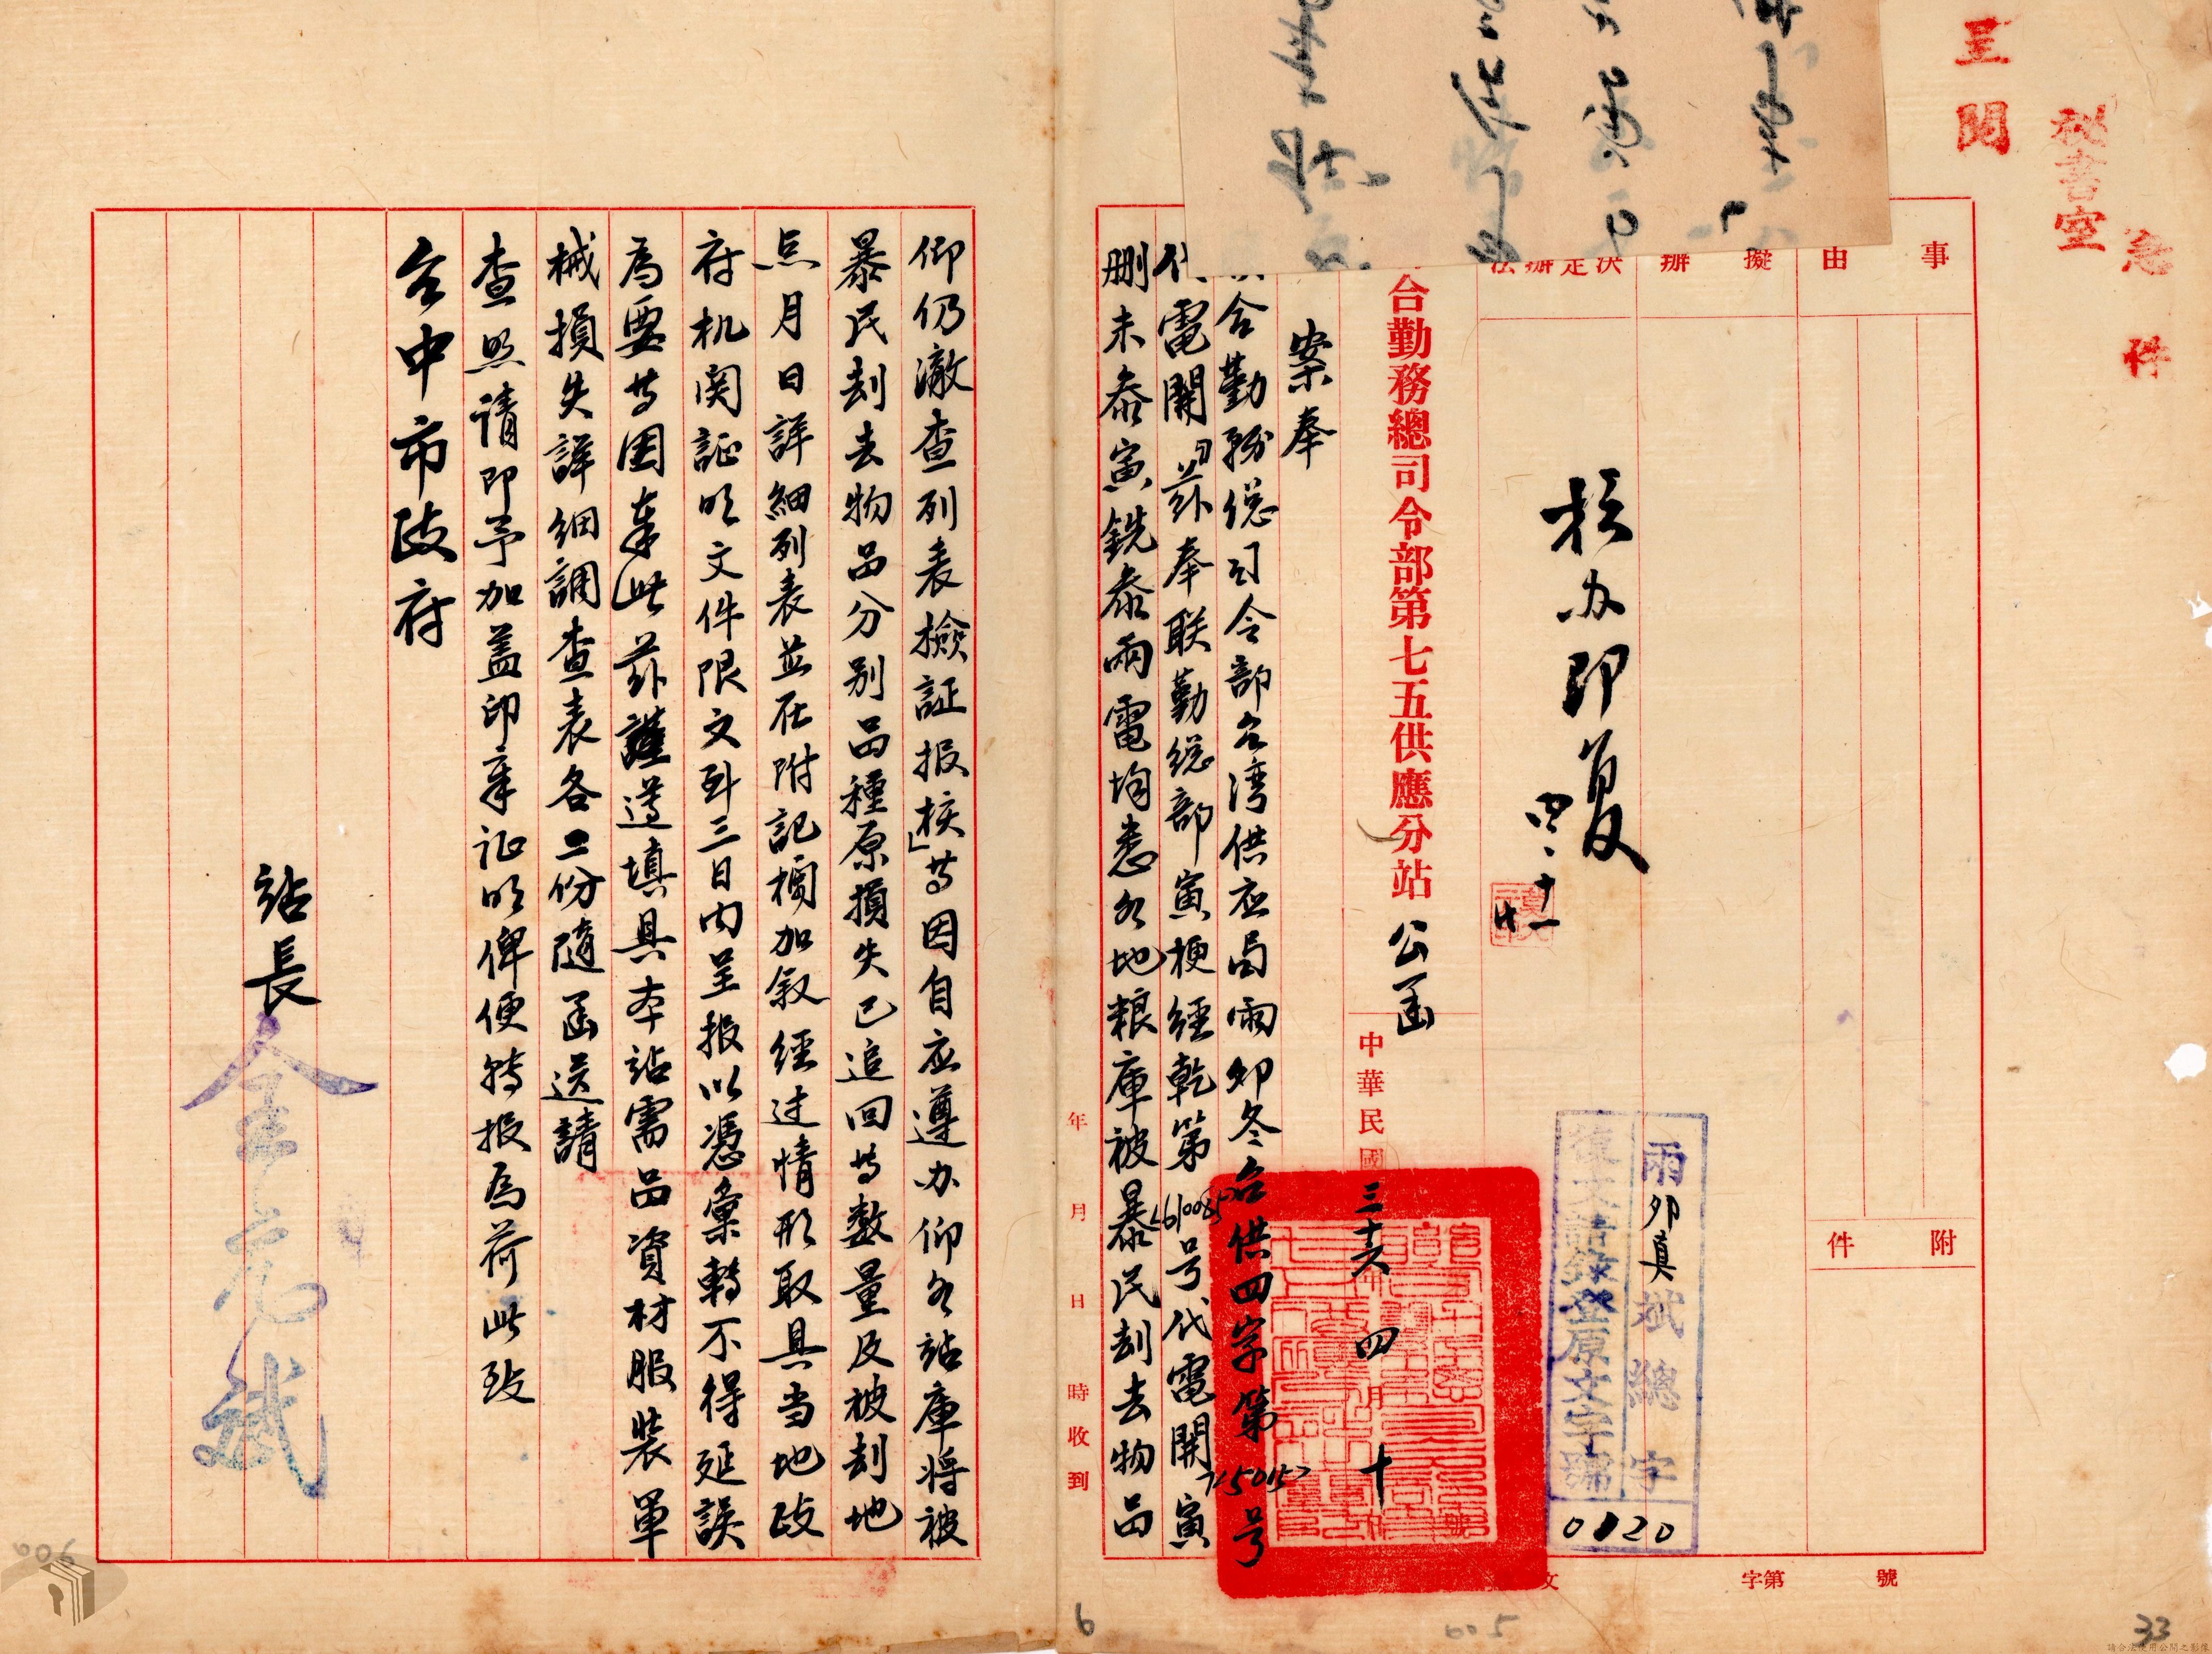 急件
秘書室
呈閱
事由
擬辦
決定辦法
附件
字第 號
核办即复
四、十一
雨卯真斌總字
復文請錄登原文字號
0120
合勤務總司令部第七五供應分站公函
中華民國三十六年四月十日
案奉
合勤務總司令部台湾供应局雨卯冬台供四字第745015号
代電開「茲奉联勤總部寅梗經乾第610085号代電開寅
删未泰寅銑泰兩電均悉各地粮庫被暴民刦去物品
年 月 日 時收到
仰仍澈查列表檢証报核」等因自应遵办仰各站庫将被
暴民刦去物品分别品種原損失已追回等数量及被刦地
点月日詳細列表並在附記欄加叙經过情形取具当地政
府机関証明文件限文到三日内呈报以憑彙轉不得延誤
為要等因奉此茲謹遵填具本站需品資材服裝軍
械損失詳細調查表各二份隨函送請
查照請即予加盖印章证明俾便轉报為荷此致
台中市政府
站長金元斌
6
005
006
33
請合法使用公開之影像